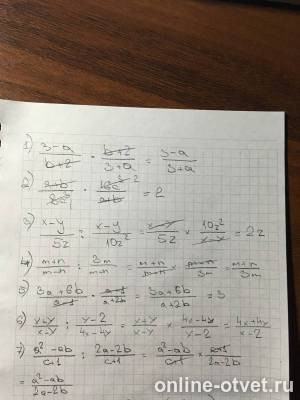 1) (3-a)/(b+2) · (b+2)/(3+a) = (3-a)/(3+a)
2) (a+b)/ · /(a+b) = 2
3) (x-y)/5z : (x-y)/10z² = (x-y)/5z × 10z²/(x-y) = 2z
4) (m+n)/(m-n) : 3m/(m-n) = (m+n)/(m-n) × (m-n)/3m = (m+n)/3m
5) (3a+6b)/(a-1) · (a-1)/(a+2b) = (3a+6b)/(a+2b) = 3
6) (x+y)/(x-y) : (y-2)/(4x-4y) = (x+y)/(x-y) × (4x-4y)/(y-2) = (4x+4y)/(x-2)
7) (a²-ab)/(c+1) : (2a-2b)/(c+1) = (a²-ab)/(c+1) × (c+1)/(2a-2b)
= (a²-ab)/(2a-2b)
online-otvet.ru